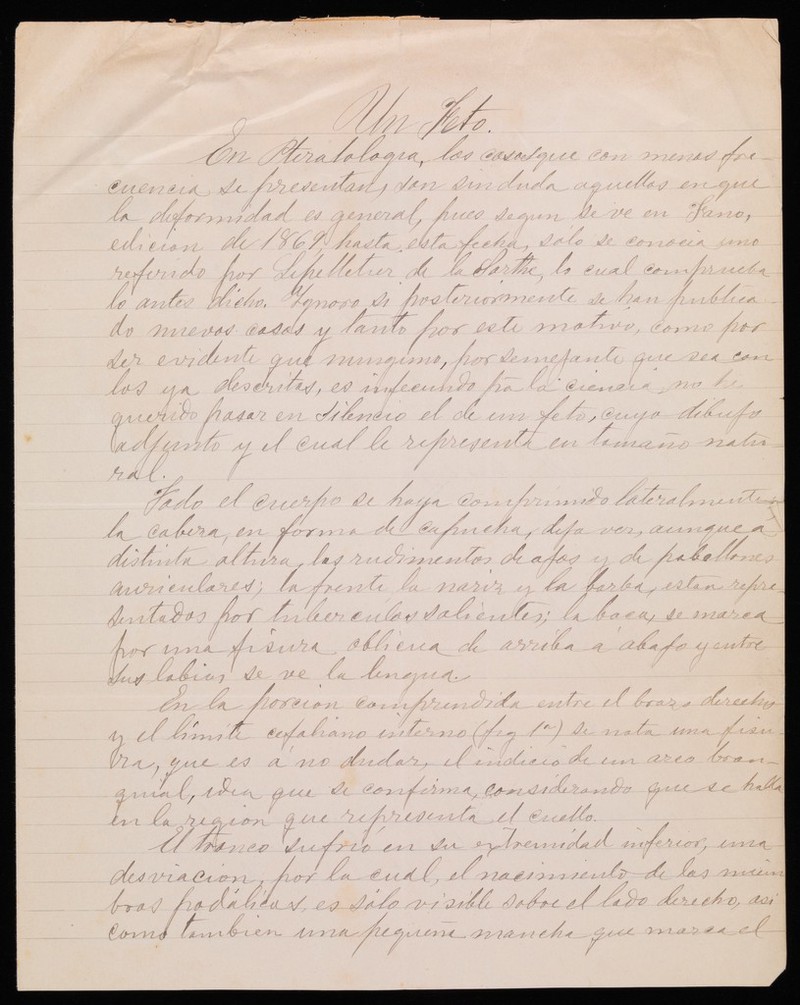 Un Feto.
En Pteratologia, los casos que con menos fre-
cuencia se presentan, son sin duda aquellos en que
la deformidad es general, pues segun se ve en Fano,
edicion de 1869, hasta esta fecha, sólo se conocia uno
referido por Lepelletier de la Sarthe, lo cual comprueba
lo antes dicho. Ygnoro si posteriormente se han publica-
do nuevos casos y tanto por este motivo, como por
ser evidente que ninguno, por semejante que sea con
los ya descritos, es infecundo pa la ciencia, no he
querido pasar en silencio el de un feto, cuyo dibujo
adjunto y el cual le representa en tamaño natu-
ral.
Todo el cuerpo se haya comprimido lateralmente y
la cabeza, en forma de capucha, deja ver, aunque a
distinta altura, los rudimentos de ojos y de pabellones
auriculares; la frente, la nariz y la barba, estan repre-
sentados por tuberculos salientes; la boca, se marca
por una fisura oblicua de arriba á abajo y entre
sus labios se ve la lengua.
En la porcion comprendida entre el brazo derecho
y el límite cefaliano interno (fig 1a) se nota una fisu-
ra, que es á no dudar, el indicio de un arco bran-
quial, idea que se confirma, considerando que se halla
en la region que representa el cuello.
El tronco sufrió en su extremidad inferior, una
desviacion, por la cual, el nacimiento de los miem
bros podálicos, es sólo visible sobre el lado derecho, asi
como tambien una pequeña mancha que marca el